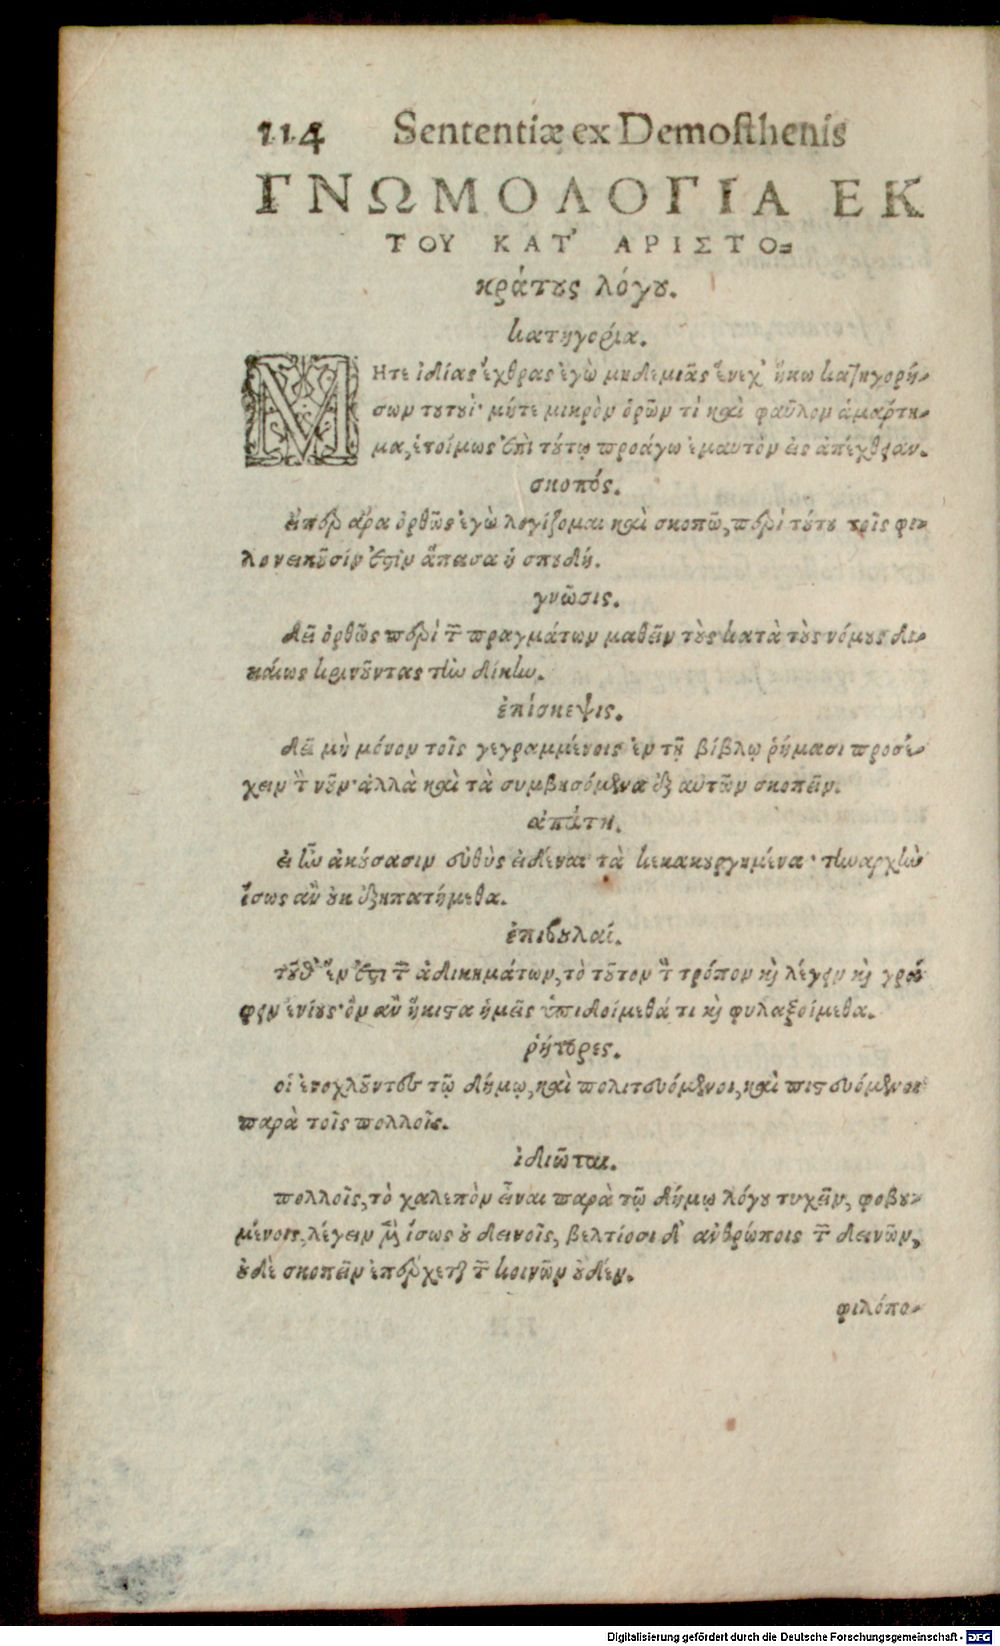 114 Sententiæ ex Demosthenis
ΓΝΩΜΟΛΟΓΙΑ ΕΚ
ΤΟΥ ΚΑΤ' ΑΡΙΣΤΟ-
κράτους λόγου.
κατηγορία.
ΜΗτε ἰδίας ἔχθρας ἐγὼ μηδεμιᾶς ἕνεχ' ἥκω κατηγορή-
σων τουτουί· μήτε μικρὸν ὁρῶν τὶ καὶ φαῦλον ἁμάρτη-
μα, ἑτοίμως ἐπὶ τούτῳ προάγω ἐμαυτὸν εἰς ἀπέχθειαν.
σκοπός.
εἴπερ ἄρα ὀρθῶς ἐγὼ λογίζομαι καὶ σκοπῶ, περὶ τούτου τοῖς φι-
λονεικοῦσίν ἐστιν ἅπασα ἡ σπουδή.
γνῶσις.
δεῖ ὀρθῶς περὶ τῶν πραγμάτων μαθεῖν τοὺς κατὰ τοὺς νόμους δι-
καίως κρινοῦντας τὴν δίκην.
ἐπίσκεψις.
δεῖ μὴ μόνον τοῖς γεγραμμένοις ἐν τῇ βίβλῳ ῥήμασι προσέ-
χειν τὸν νοῦν· ἀλλὰ καὶ τὰ συμβησόμενα ἐξ αὐτῶν σκοπεῖν.
ἀπάτη.
εἰ ἦν ἀκούσασιν εὐθὺς εἰδέναι τὰ κεκακουργημένα· τὴν ἀρχὴν
ἴσως ἂν οὐκ ἐξηπατήμεθα.
ἐπιβουλαί.
τοῦθ' ἕν ἐστι τῶν ἀδικημάτων, τὸ τοῦτον τὸν τρόπον καὶ λέγειν καὶ γρά
φειν ἐνίους· ὃν ἂν ἥκιστα ἡμεῖς ὑπιδοίμεθά τι καὶ φυλαξοίμεθα.
ῥήτορες.
οἱ ἐνοχλοῦντες τῷ δήμῳ, καὶ πολιτευόμενοι, καὶ πιστευόμενοι
παρὰ τοῖς πολλοῖς.
ἰδιῶται.
πολλοῖς, τὸ χαλεπὸν εἶναι παρὰ τῷ δήμῳ λόγου τυχεῖν, φοβου-
μένοις, λέγειν μὲν ἴσως οὐ δεινοῖς, βελτίοσι δ' ἀνθρώποις τῶν δεινῶν,
οὐδὲ σκοπεῖν ἐπέρχεται τῶν κοινῶν οὐδέν.
φιλόπο-
Digitalisierung gefördert durch die Deutsche Forschungsgemeinschaft - DFG